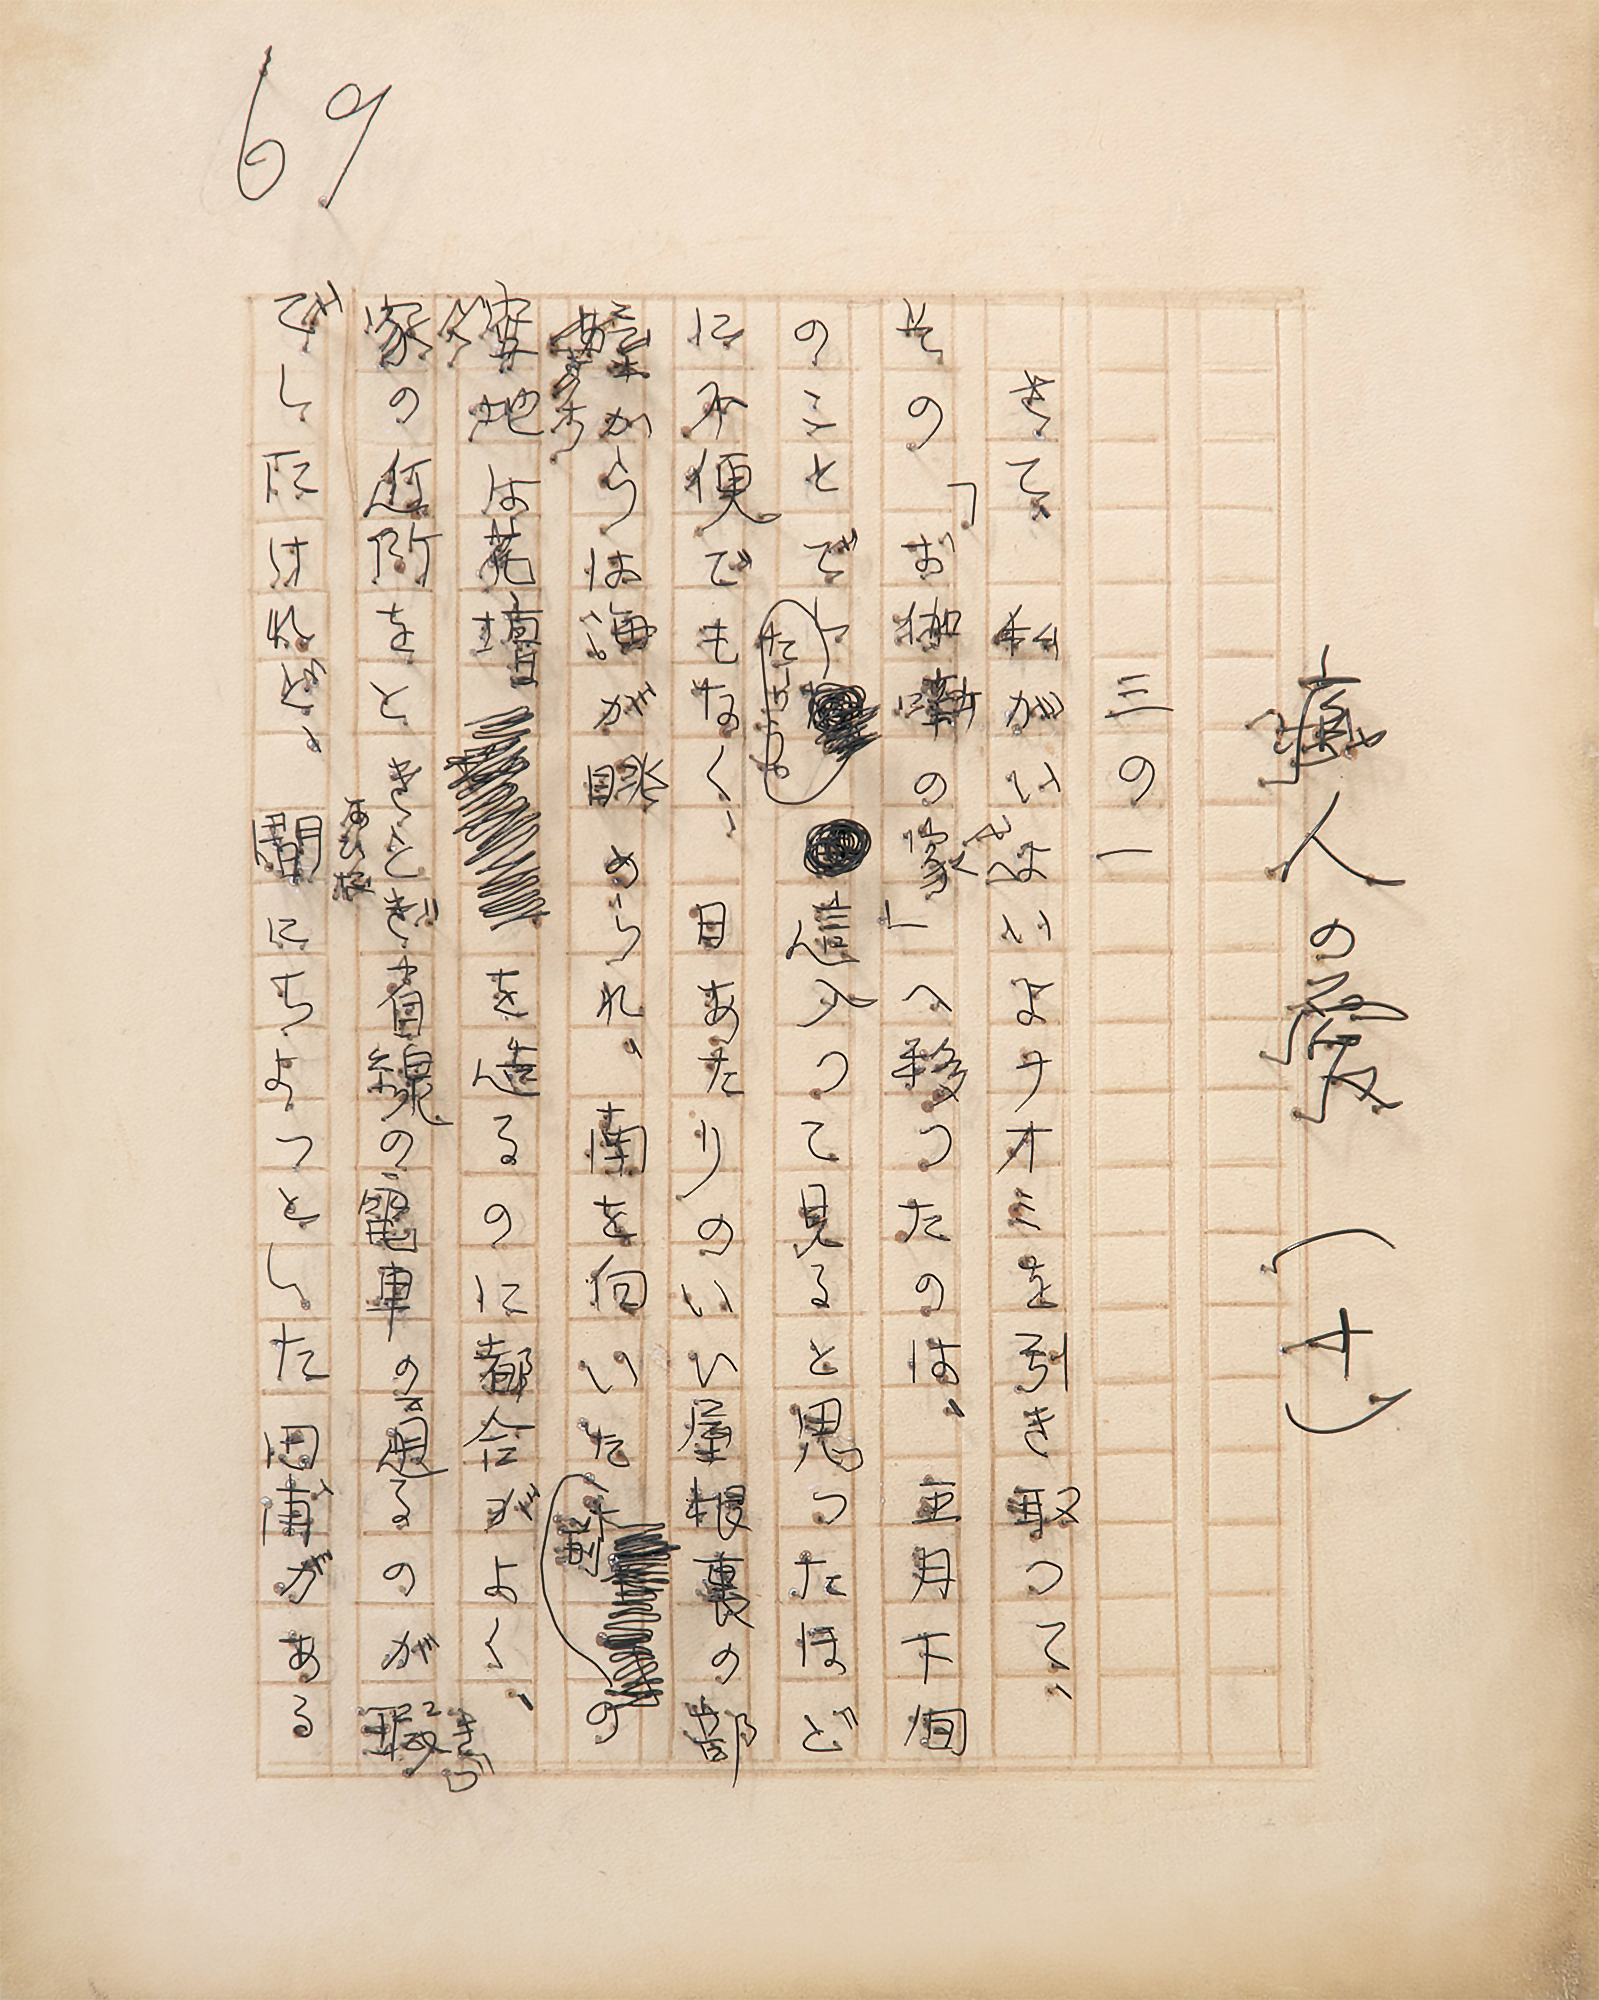 癡人の愛 (十)
三の一
さて、私がいよいよナオミを引き取つて、
その「お伽噺の家」へ移つたのは、五月下旬
のことでしたらう。這入つて見ると思つたほど
に不便でもなく、日あたりのいい屋根裏の部
屋からは海が眺められ、南を向いた前の
空地は花壇を造るのに都合がよく、
家の近所をときどき省線の電車の通るのが瑕
きず
でしたけれど、間にちよつとした田圃がある
あひだ
69